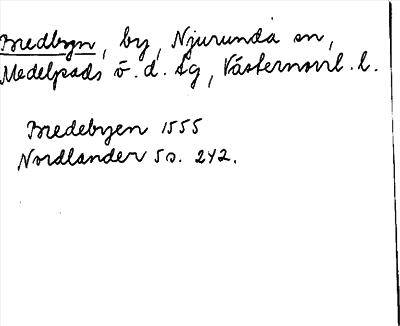 Bredbyn, by, Njurunda sn,
Medelpads ö. d. tg, Västernorrl. l.
Bredebyen 1555
Nordlander So. 242.